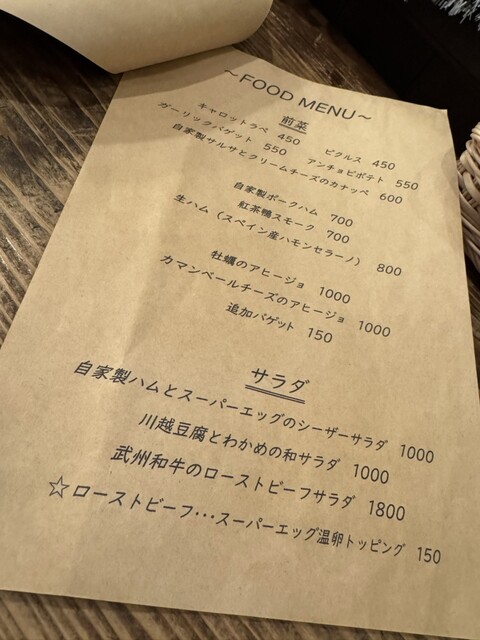 ～FOOD MENU～
前菜
キャロットラペ 450 ピクルス 450
ガーリックバゲット 550 アンチョビポテト 550
自家製サルサとクリームチーズのカナッペ 600
自家製ポークハム 700
紅茶鴨スモーク 700
生ハム（スペイン産ハモンセラーノ） 800
牡蠣のアヒージョ 1000
カマンベールチーズのアヒージョ 1000
追加バゲット 150
サラダ
自家製ハムとスーパーエッグのシーザーサラダ 1000
川越豆腐とわかめの和サラダ 1000
武州和牛のローストビーフサラダ 1800
☆ローストビーフ･･･スーパーエッグ温卵トッピング 150